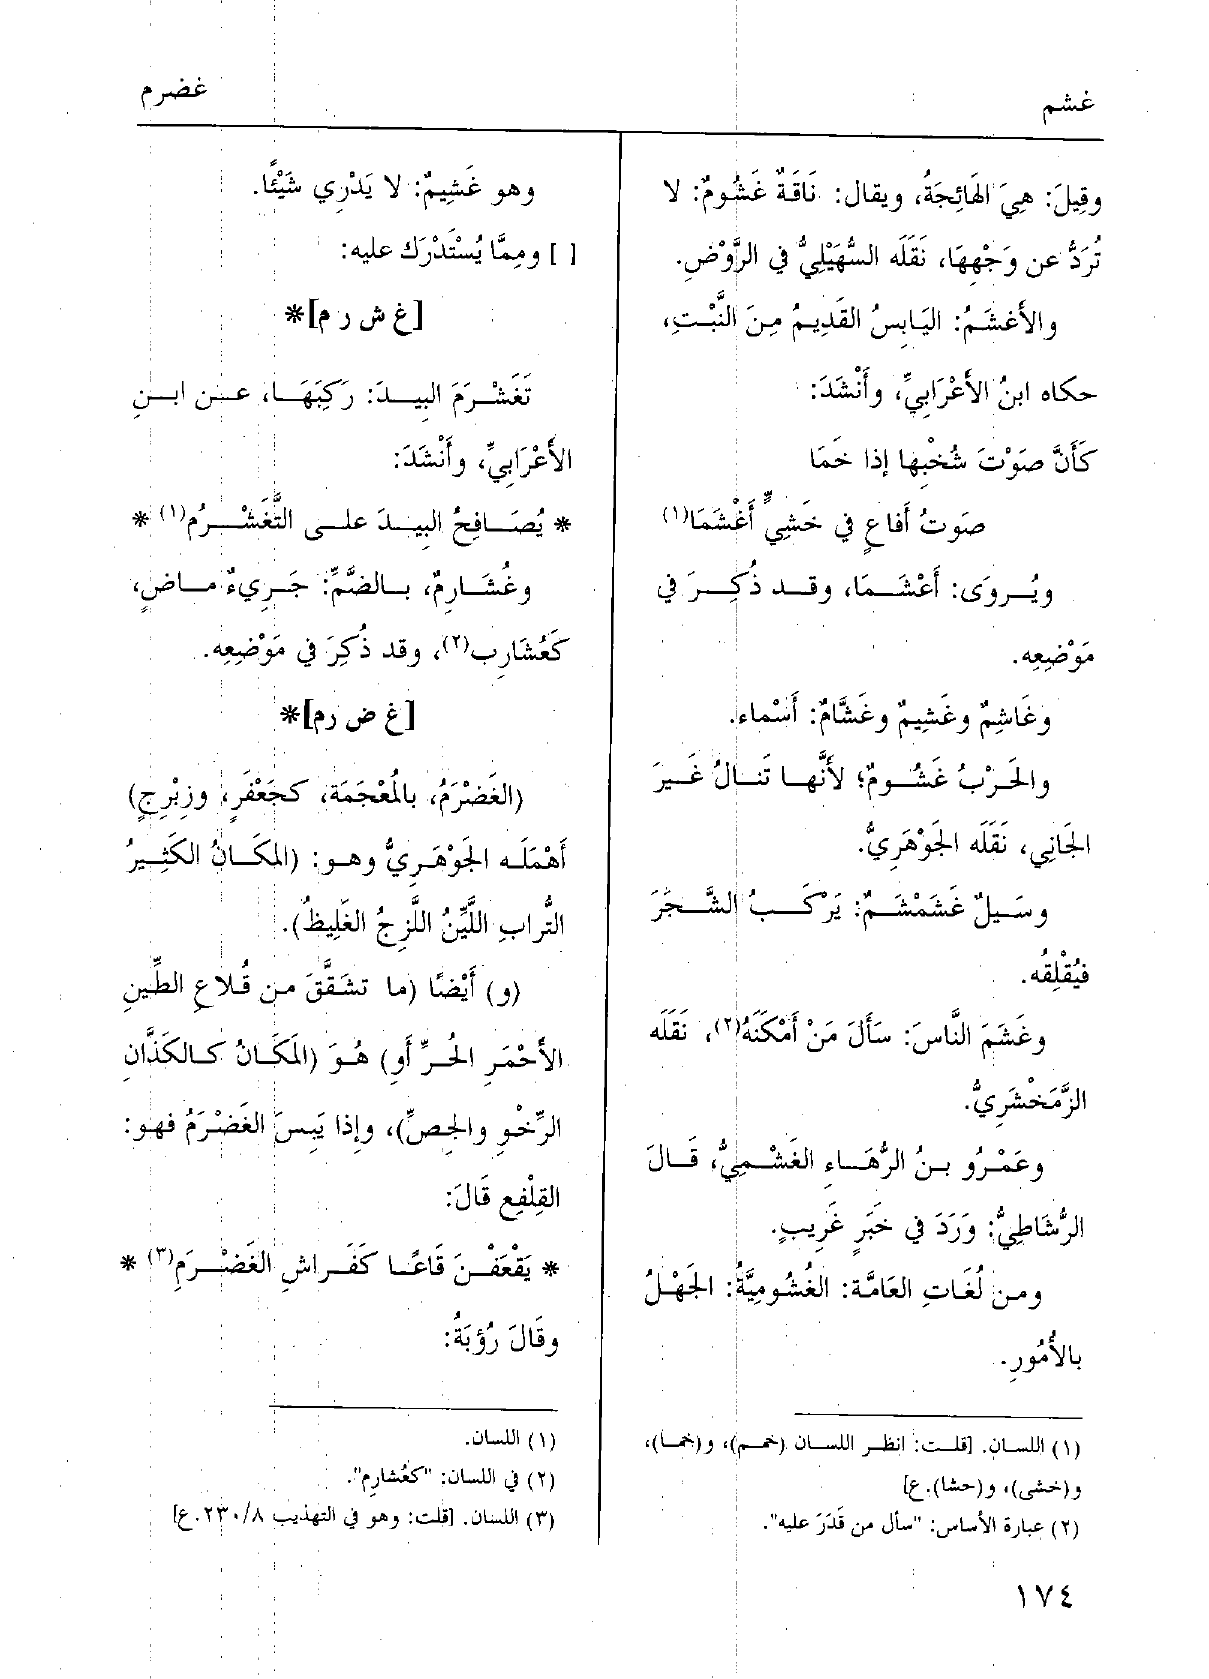 غشم
غضرم
وقِيلَ: هِيَ الهَائِجَةُ، ويقال: نَاقَةٌ غَشُومٌ: لا
تُرَدُّ عن وَجْهِهَا، نَقَلَه السُّهَيْلِيُّ في الرَّوْضِ.
والأَغشَمُ: اليَابِسُ القَدِيمُ مِنَ النَّبْتِ،
حكاه ابنُ الأَعْرَابِيِّ، وأَنْشَدَ:
كَأَنَّ صَوْتَ شُخْبِها إذا خَمَا
صَوتُ أَفاعٍ في خَشِيٍّ أَغْشَمَا(١)
ويُروَى: أَعْشَمَا، وقد ذُكِرَ في
مَوْضِعِه.
وغَاشِمٌ وغَشِيمٌ وغَشَّامٌ: أَسْماء.
والحَرْبُ غَشُومٌ؛ لأَنَّها تَنالُ غَيرَ
الجَانِي، نَقَلَه الجَوْهَرِيُّ.
وسَيلٌ غَشَمْشَمٌ: يَرْكَبُ الشَّجَرَ
فيُقْلِقُه.
وغَشَمَ النَّاسَ: سَأَلَ مَنْ أَمْكَنَهُ(٢)، نَقَلَه
الزَّمَخْشَرِيُّ.
وعَمْرُو بنُ الرُّهَاءِ الغَشْمِيُّ، قَالَ
الرُّشَاطِيُّ: وَرَدَ في خَبَرٍ غَرِيبٍ.
ومن لُغَاتِ العَامَّة: الغُشُومِيَّةُ: الجَهْلُ
بالأُمُورِ.
(١) اللسان. [قلت: انظر اللسان (خمم)، و(خما)،
و(خشى)، و(حشا).ع]
(٢) عبارة الأساس: "سأل من قَدَرَ عليه".
وهو غَشِيمٌ: لا يَدْرِي شَيْئًا.
[ ] ومِمَّا يُسْتَدْرَك عليه:
[غ ش ر م]*
تَغَشْرَمَ البِيدَ: رَكِبَهَا، عن ابنِ
الأَعْرَابِيِّ، وأَنْشَدَ:
* يُصَافِحُ البِيدَ على التَّغَشْرُمِ(١) *
وغُشَارِمٌ، بالضَّمِّ: جَرِيءٌ ماضٍ،
كَعُشَارِب(٢)، وقد ذُكِرَ في مَوْضِعِه.
[غ ض رم]*
(الغَضْرَمُ، بالمُعْجَمَة، كجَعْفَرٍ، وزِبْرِجٍ)
أَهْمَلَه الجَوْهَرِيُّ وهو: (المكَانُ الكَثِيرُ
التُّرابِ اللَّيِّنُ اللَّزِجُ الغَلِيظُ).
(و) أَيْضًا (ما تشَقَّقَ من قُلاعِ الطِّينِ
الأَحْمَرِ الحُرِّ أو) هُوَ (المَكَانُ كالكَذَّانِ
الرِّخْوِ والجِصِّ)، وإذا يَبِسَ الغَضْرَمُ فهو:
القِلْفِع قَالَ:
* يَقْعَفْنَ قَاعًا كَفَراشِ الغَضْرَمِ(٣) *
وقَالَ رُؤبَةُ:
(١) اللسان.
(٢) في اللسان: "كعُشارِم".
(٣) اللسان. [قلت: وهو في التهذيب ٢٣٠/٨.ع]
١٧٤